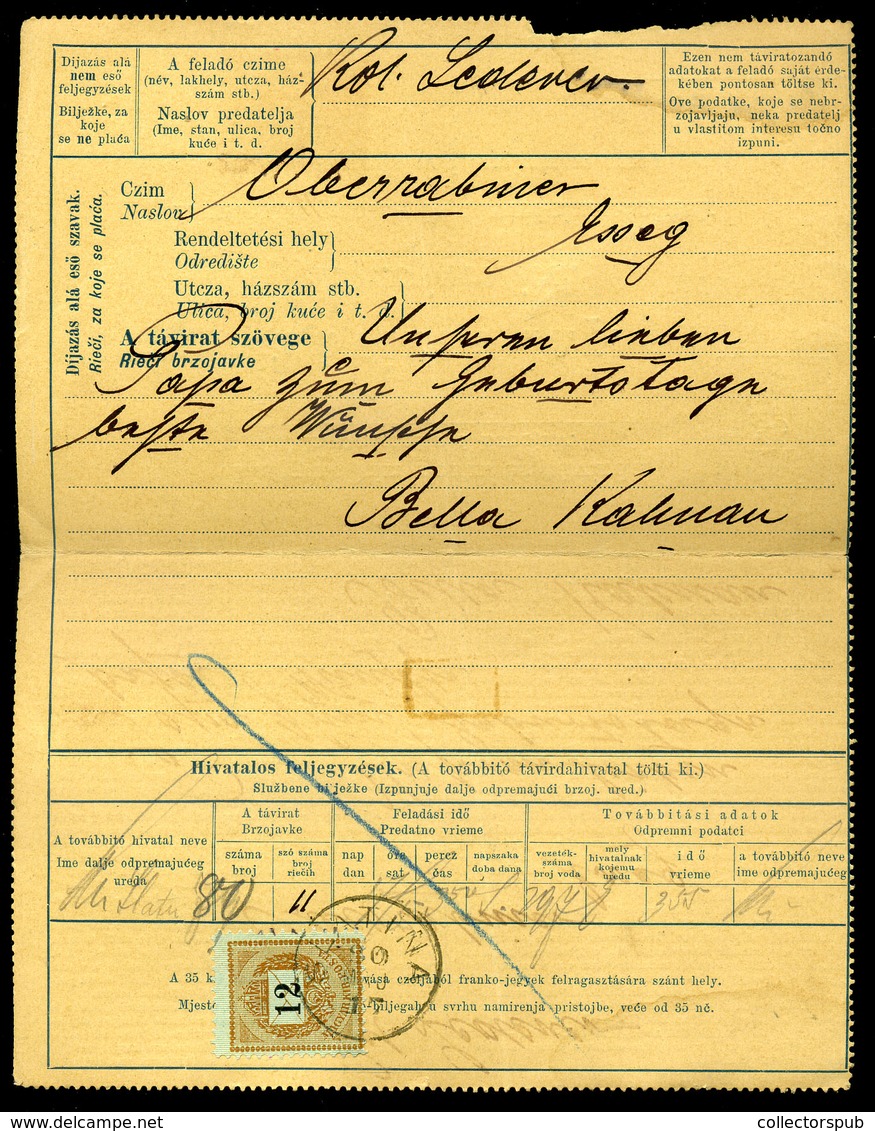 Díjazás alá
nem eső
feljegyzések
Bilježke, za
koje
se ne plaća
A feladó czime
(név, lakhely, utcza, ház-
szám stb.)
Naslov predatelja
(Ime, stan, ulica, broj
kuće i t. d.
Lederer
Ezen nem táviratozandó
adatokat a feladó saját érde-
kében pontosan töltse ki.
Ove podatke, koje se nebr-
zojavljaju, neka predatelj
u vlastitom interesu točno
izpuni.
Díjazás alá eső szavak.
Rieči, za koje se plaća.
Czim
Naslov
Oberrabiner
Rendeltetési hely
Odredište
Esseg
Utcza, házszám stb.
Ulica, broj kuće i t. d.
A távirat szövege
Rieči brzojavke
Unseren lieben
Papa zum Geburtstage
beste Wünsche
Bella Kalman
Hivatalos feljegyzések. (A továbbitó távirdahivatal tölti ki.)
Službene bilježke (Izpunjuje dalje odpremajući brzoj. ured.)
A továbbitó hivatal neve
Ime dalje odpremajućeg
ureda
A távirat
Brzojavke
száma
broj
szó száma
broj
riečih
Feladási idő
Predatno vrieme
nap
dan
óra
sat
percz
čas
napszaka
doba dana
Továbbitási adatok
Odpremni podatci
vezeték-
száma
broj voda
mely
hivatalnak
kojemu
uredu
idő
vrieme
a továbbitó neve
ime odpremajućeg
80
11
12
A 35 k
czéljából franko-jegyek felragasztására szánt hely.
Mjesto
biljegah u svrhu namirenja pristojbe, veće od 35 nč.
collectorspub.com